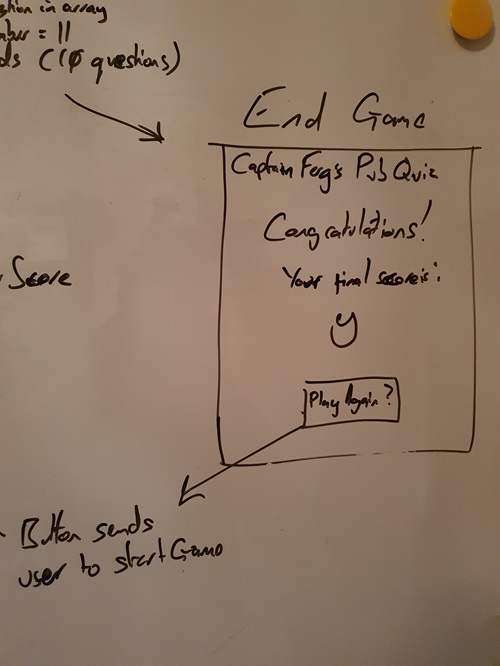 in array
= 11
(10 questions)
End Game
Captain Ferg's Pub Quiz
Congratulations!
Your final score is:
y
Score
Play Again?
Button sends
user to start Game